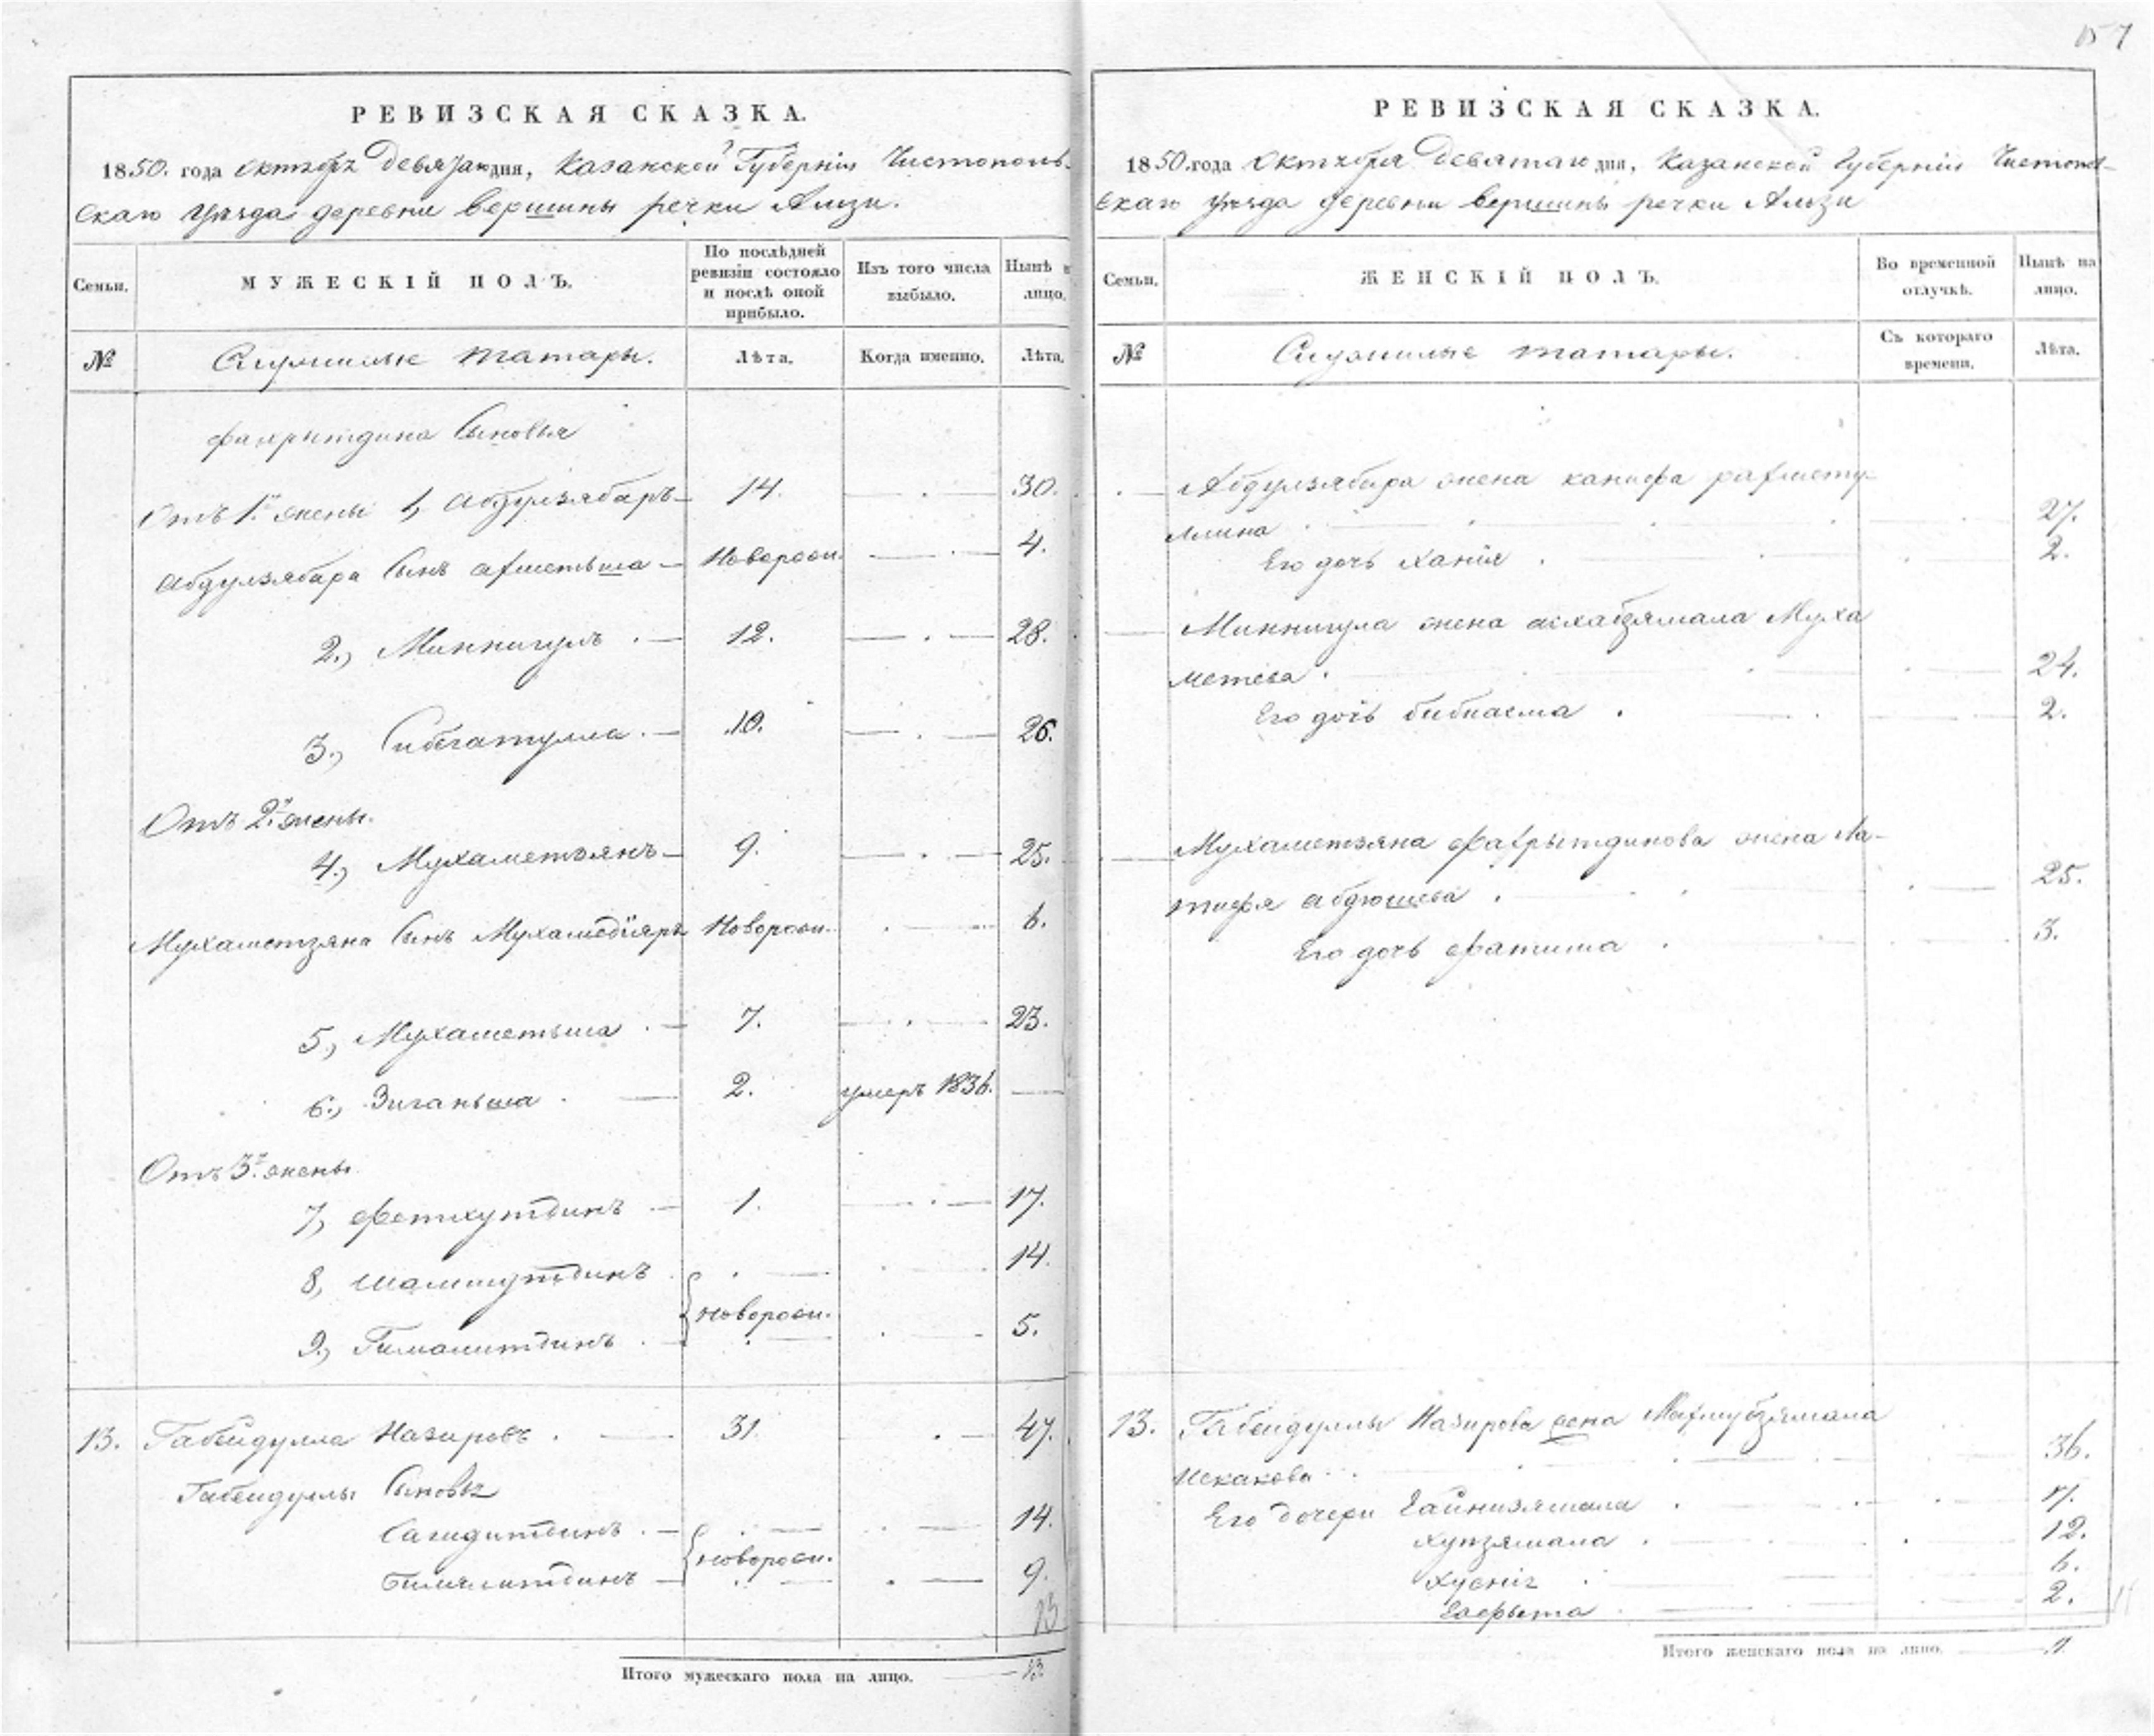 157
РЕВИЗСКАЯ СКАЗКА.
1850. года Октябрь Девятаго дня, Казанской Губернiи Чистополь-
скаго уѣзда деревни вершины речки Ализи.
Семьи.
МУЖЕСКIЙ ПОЛЪ.
По послѣдней ревизiи состояло и послѣ оной прибыло.
Изъ того числа выбыло.
Нынѣ на лицо.
№
Служилые татары.
Лѣта.
Когда именно.
Лѣта.
Фахрытдина Сыновья
Отъ 1й жены 1, Абдулзябаръ 14. 30.
Абдулзябара Сынъ ахметьша Новорож. 4.
2., Миннигулъ 12. 28.
3., Сибгатулла 10. 26.
Отъ 2й жены.
4., Мухаметзянъ 9. 25.
Мухаметзяна Сынъ Мухамедiяръ Новорож. 6.
5., Мухаметьша 7. 23.
6., Зиганьша 2. умеръ 1836.
Отъ 3й жены
7, Фетхутдинъ 1. 17.
8, Шамшутдинъ 14.
новорож.
9., Гималитдинъ 5.
13. Габейдулла Назировъ 31. 47.
Габейдуллы Сыновья
Сагидитдинъ 14.
новорож.
Гималитдинъ 9.
13
Итого мужескаго пола на лицо. 13
РЕВИЗСКАЯ СКАЗКА.
1850. года Октября Девятаго дня, Казанской Губернiи Чистополь-
скаго уѣзда деревни вершины речки Ализи
Семьи.
ЖЕНСКIЙ ПОЛЪ.
Во временной отлучкѣ.
Нынѣ на лицо.
№
Служилые татары.
Съ котораго времени.
Лѣта.
Абдулзябара жена ханифа рахмету-
ллина 27.
Его дочь ханiя 2.
Миннигула жена асхабзямала Муха
метева. 24.
Его дочь бибиасма 2.
Мухаметзяна Фахрытдинова жена Ла-
тифя абдюшева 25.
Его дочь фатима 3.
13. Габейдуллы Назирова жена Махмубзямала
Искакова 36.
Его дочери Гайнизямала 17.
Хупзямала 12.
Хуснiя 6.
2.
Итого женскаго пола на лицо. 11